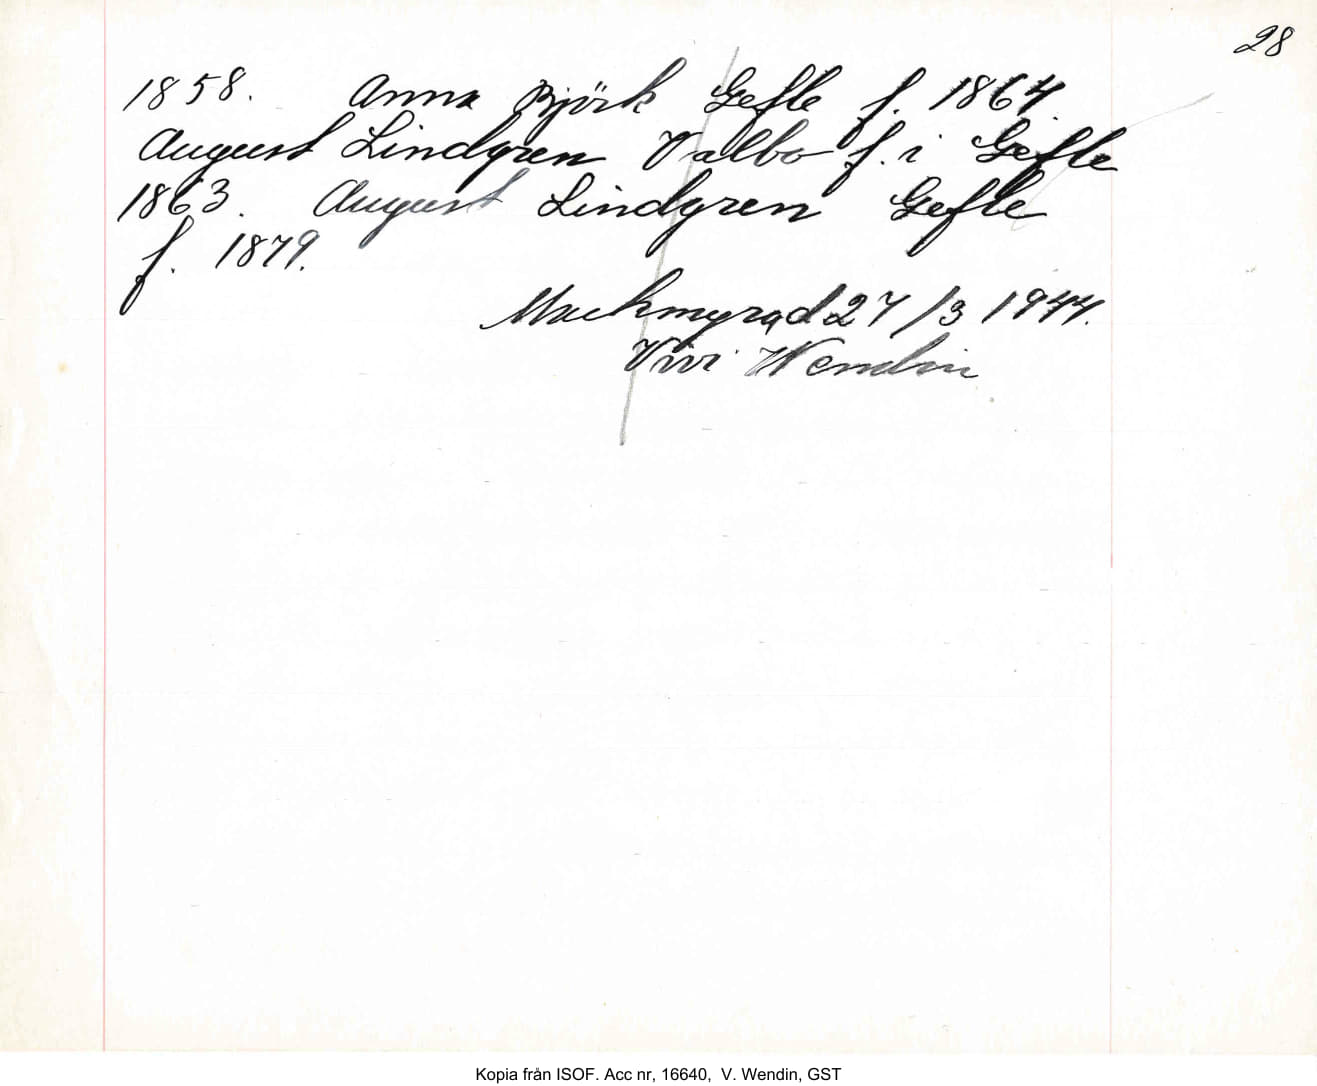 28
1858. Anna Björk Gefle f. 1864
August Lindgren Valbo f. i Gefle
1863. August Lindgren Gefle
f. 1879.
Mackmyra d 27/3 1944.
Vivi Wendin
Kopia från ISOF. Acc nr, 16640, V. Wendin, GST